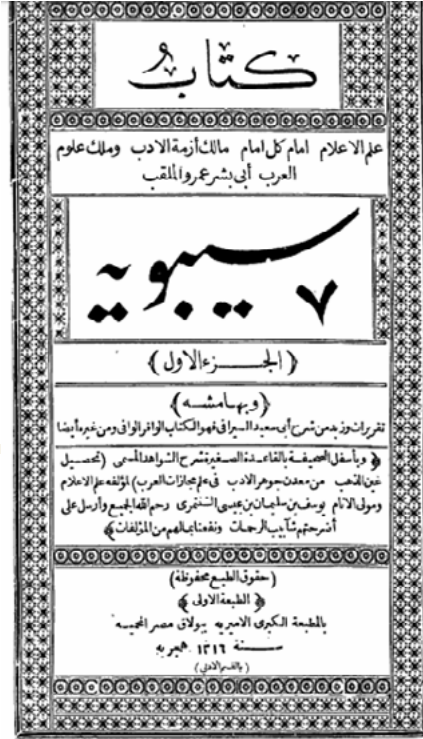 كتاب
علم الاعلام امام كل امام مالك أزمة الادب وملك علوم
العرب أبى بشر عمرو الملقب
سيبويه
﴿الجزء الاول﴾
﴿وبهامشه﴾
تقريرات وزبد من شرح أبى سعيد السيرافى فهو الكتاب الوافر الوافى ومن غيره أيضا
﴿وبأسفل الصحيفة بالقاعدة الصغيرة شرح الشواهد المسمى (تحصيل
عين الذهب من معدن جوهر الادب فى علم مجازات العرب) لمؤلفه علم الاعلام
ومولى الانام يوسف بن سليمان بن عيسى الشنتمرى رحم الله الجميع وأرسل على
أضرحتهم شآبيب الرحمات ونفعنا بمالهم من المؤلفات﴾
(حقوق الطبع محفوظة)
﴿الطبعة الاولى﴾
بالمطبعة الكبرى الاميريه ببولاق مصر المحميه
سنة ١٣١٦ هجريه
(بالقسم الادبى)